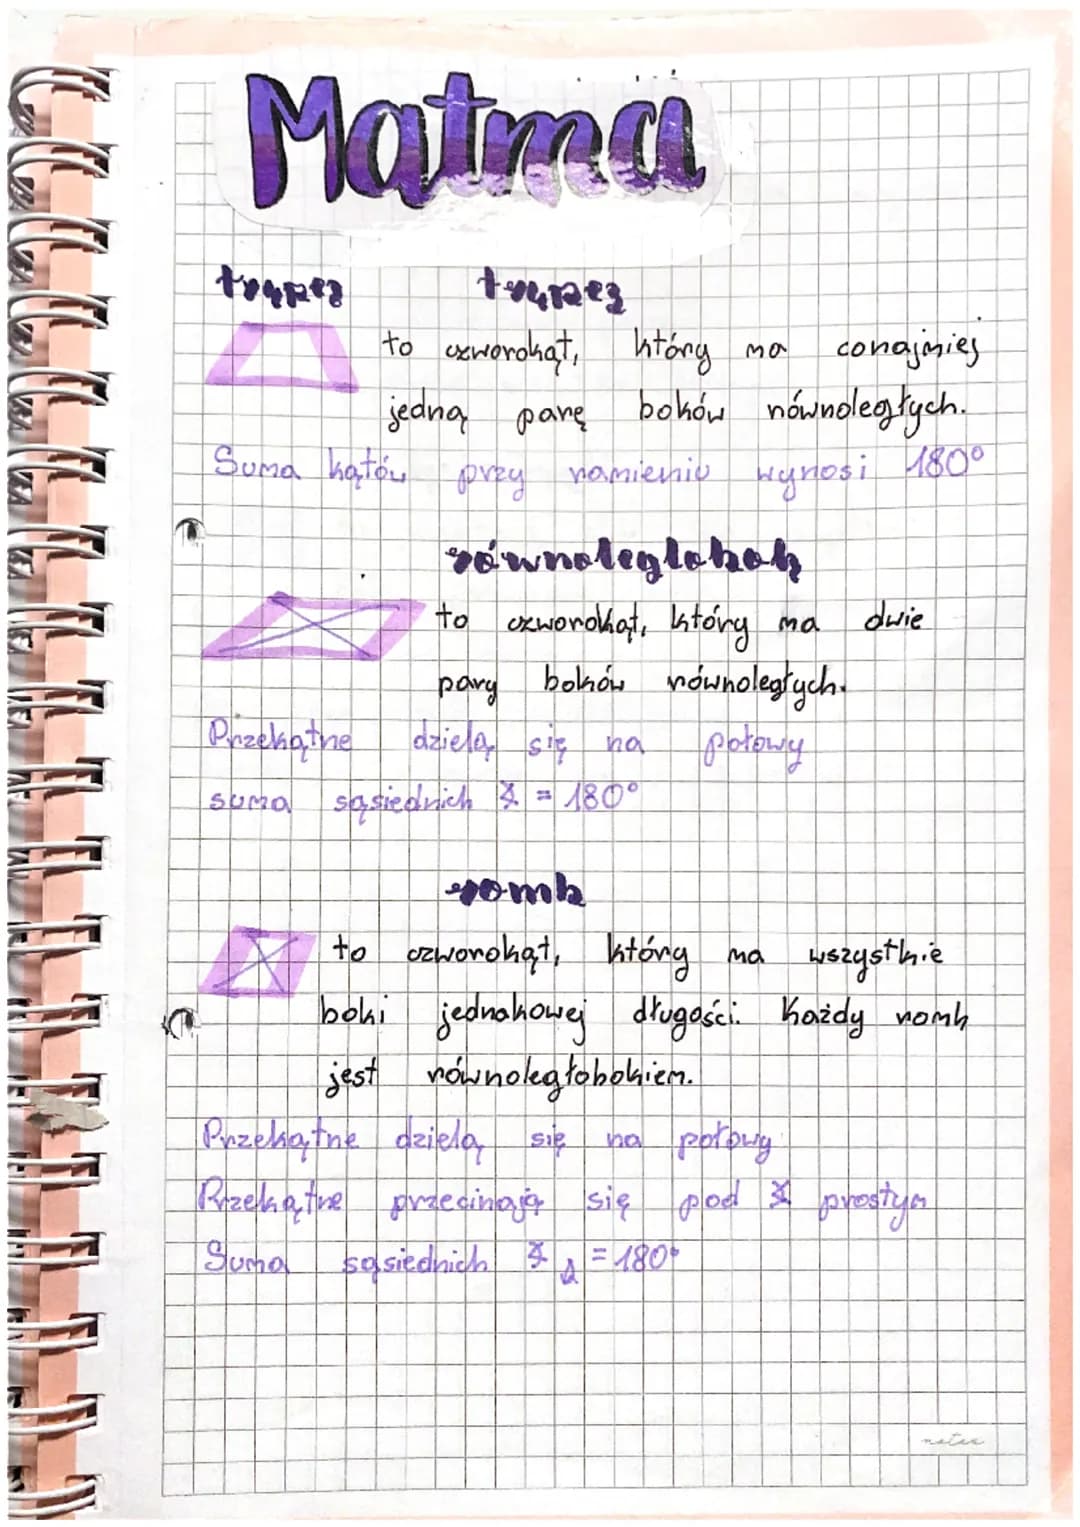 Matma
trapez trapez
to czworokąt, który ma conajmniej
jedną parę boków równoległych.
Suma kątów przy ramieniu wynosi 180°
równoległobok
to czworokąt, który ma dwie
pary boków równoległych.
Przekątne dzielą się na połowy
suma sąsiednich ∡ = 180°
romb
to czworokąt, który ma wszystkie
boki jednakowej długości. Każdy romb
jest równoległobokiem.
Przekątne dzielą się na połowy
Przekątne przecinają się pod ∡ prostym
Suma sąsiednich ∡ = 180°
notes